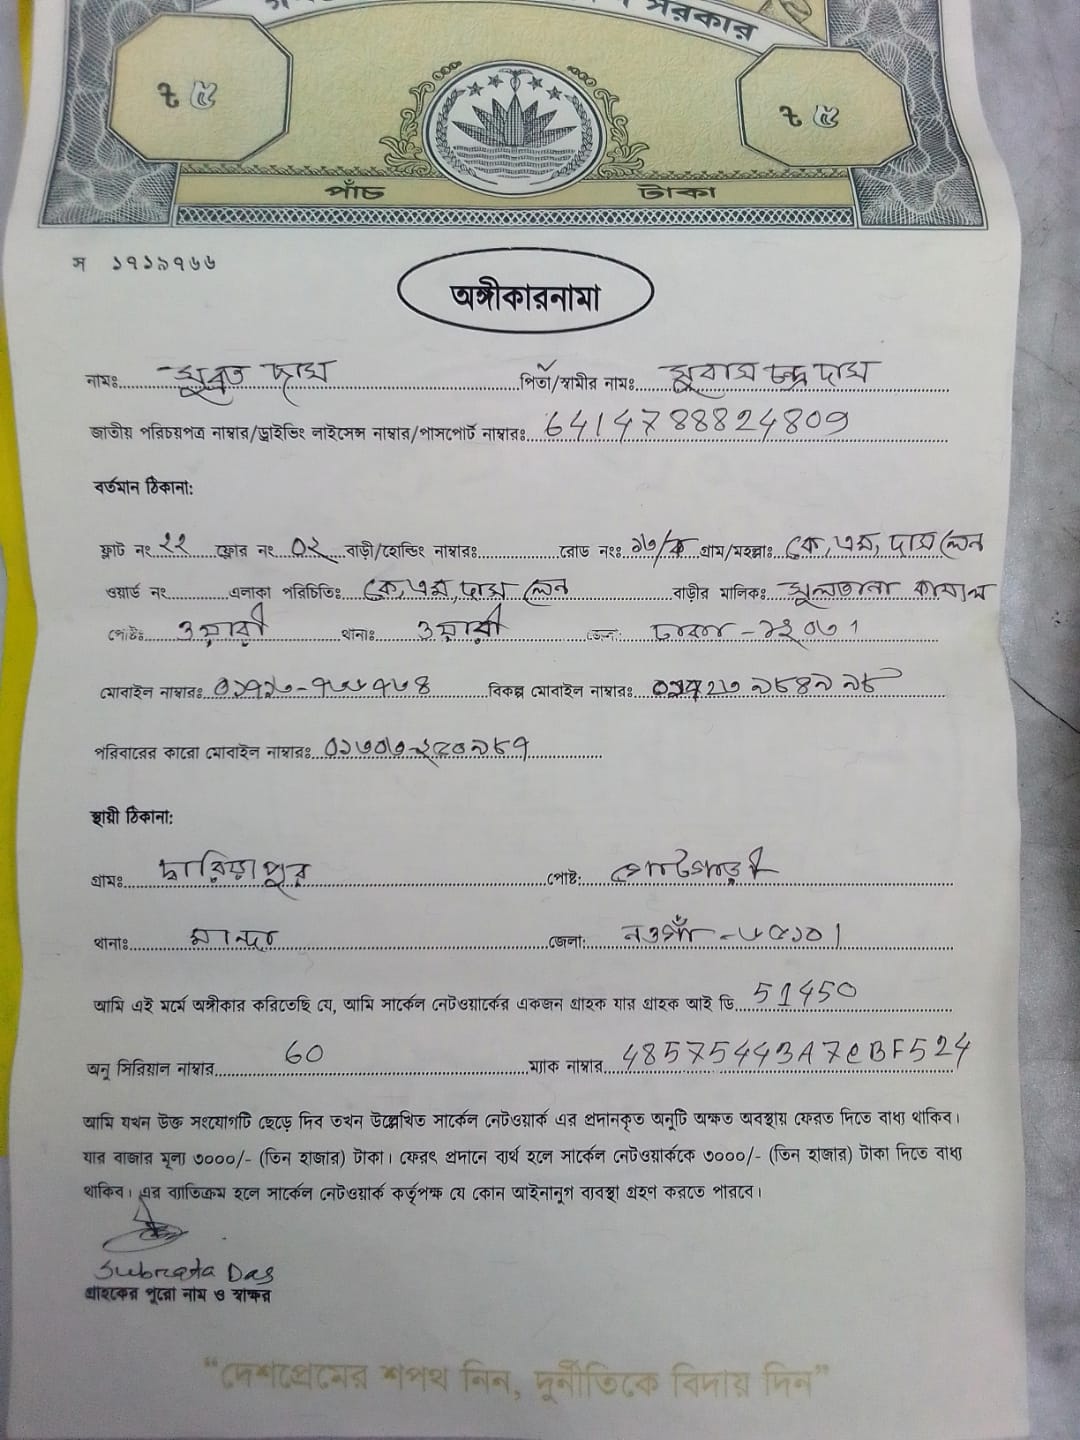 সরকার
৳ ৫ ৳ ৫
পাঁচ টাকা
স ১৭১৯৭৬৬
অঙ্গীকারনামা
নামঃ সুব্রত দাস পিতা/স্বামীর নামঃ সুবাস চন্দ্র দাস
জাতীয় পরিচয়পত্র নাম্বার/ড্রাইভিং লাইসেন্স নাম্বার/পাসপোর্ট নাম্বারঃ 6414788824809
বর্তমান ঠিকানা:
ফ্লাট নং ২২ ফ্লোর নং ০২ বাড়ী/হোল্ডিং নাম্বারঃ রোড নংঃ ১৬/ক গ্রাম/মহল্লাঃ কে, এম, দাস লেন
ওয়ার্ড নং এলাকা পরিচিতিঃ কে, এম, দাস লেন বাড়ীর মালিকঃ সুলতানা কামাল
পোষ্টঃ ওয়ারী থানাঃ ওয়ারী জেলা: ঢাকা -
মোবাইল নাম্বারঃ বিকল্প মোবাইল নাম্বারঃ
পরিবারের কারো মোবাইল নাম্বারঃ
স্থায়ী ঠিকানা:
গ্রামঃ দ্বারিয়াপুর পোষ্ট:
থানাঃ মান্দা জেলা: নওগাঁ -
আমি এই মর্মে অঙ্গীকার করিতেছি যে, আমি সার্কেল নেটওয়ার্কের একজন গ্রাহক যার গ্রাহক আই ডি. 51450
অনু সিরিয়াল নাম্বার 60 ম্যাক নাম্বার 48575443A7CBF524
আমি যখন উক্ত সংযোগটি ছেড়ে দিব তখন উল্লেখিত সার্কেল নেটওয়ার্ক এর প্রদানকৃত অনুটি অক্ষত অবস্থায় ফেরত দিতে বাধ্য থাকিব।
যার বাজার মূল্য ৩০০০/- (তিন হাজার) টাকা। ফেরৎ প্রদানে ব্যর্থ হলে সার্কেল নেটওয়ার্ককে ৩০০০/- (তিন হাজার) টাকা দিতে বাধ্য
থাকিব। এর ব্যতিক্রম হলে সার্কেল নেটওয়ার্ক কর্তৃপক্ষ যে কোন আইনানুগ ব্যবস্থা গ্রহণ করতে পারবে।
Subrata Das
গ্রাহকের পুরো নাম ও স্বাক্ষর
“দেশপ্রেমের শপথ নিন, দুর্নীতিকে বিদায় দিন”